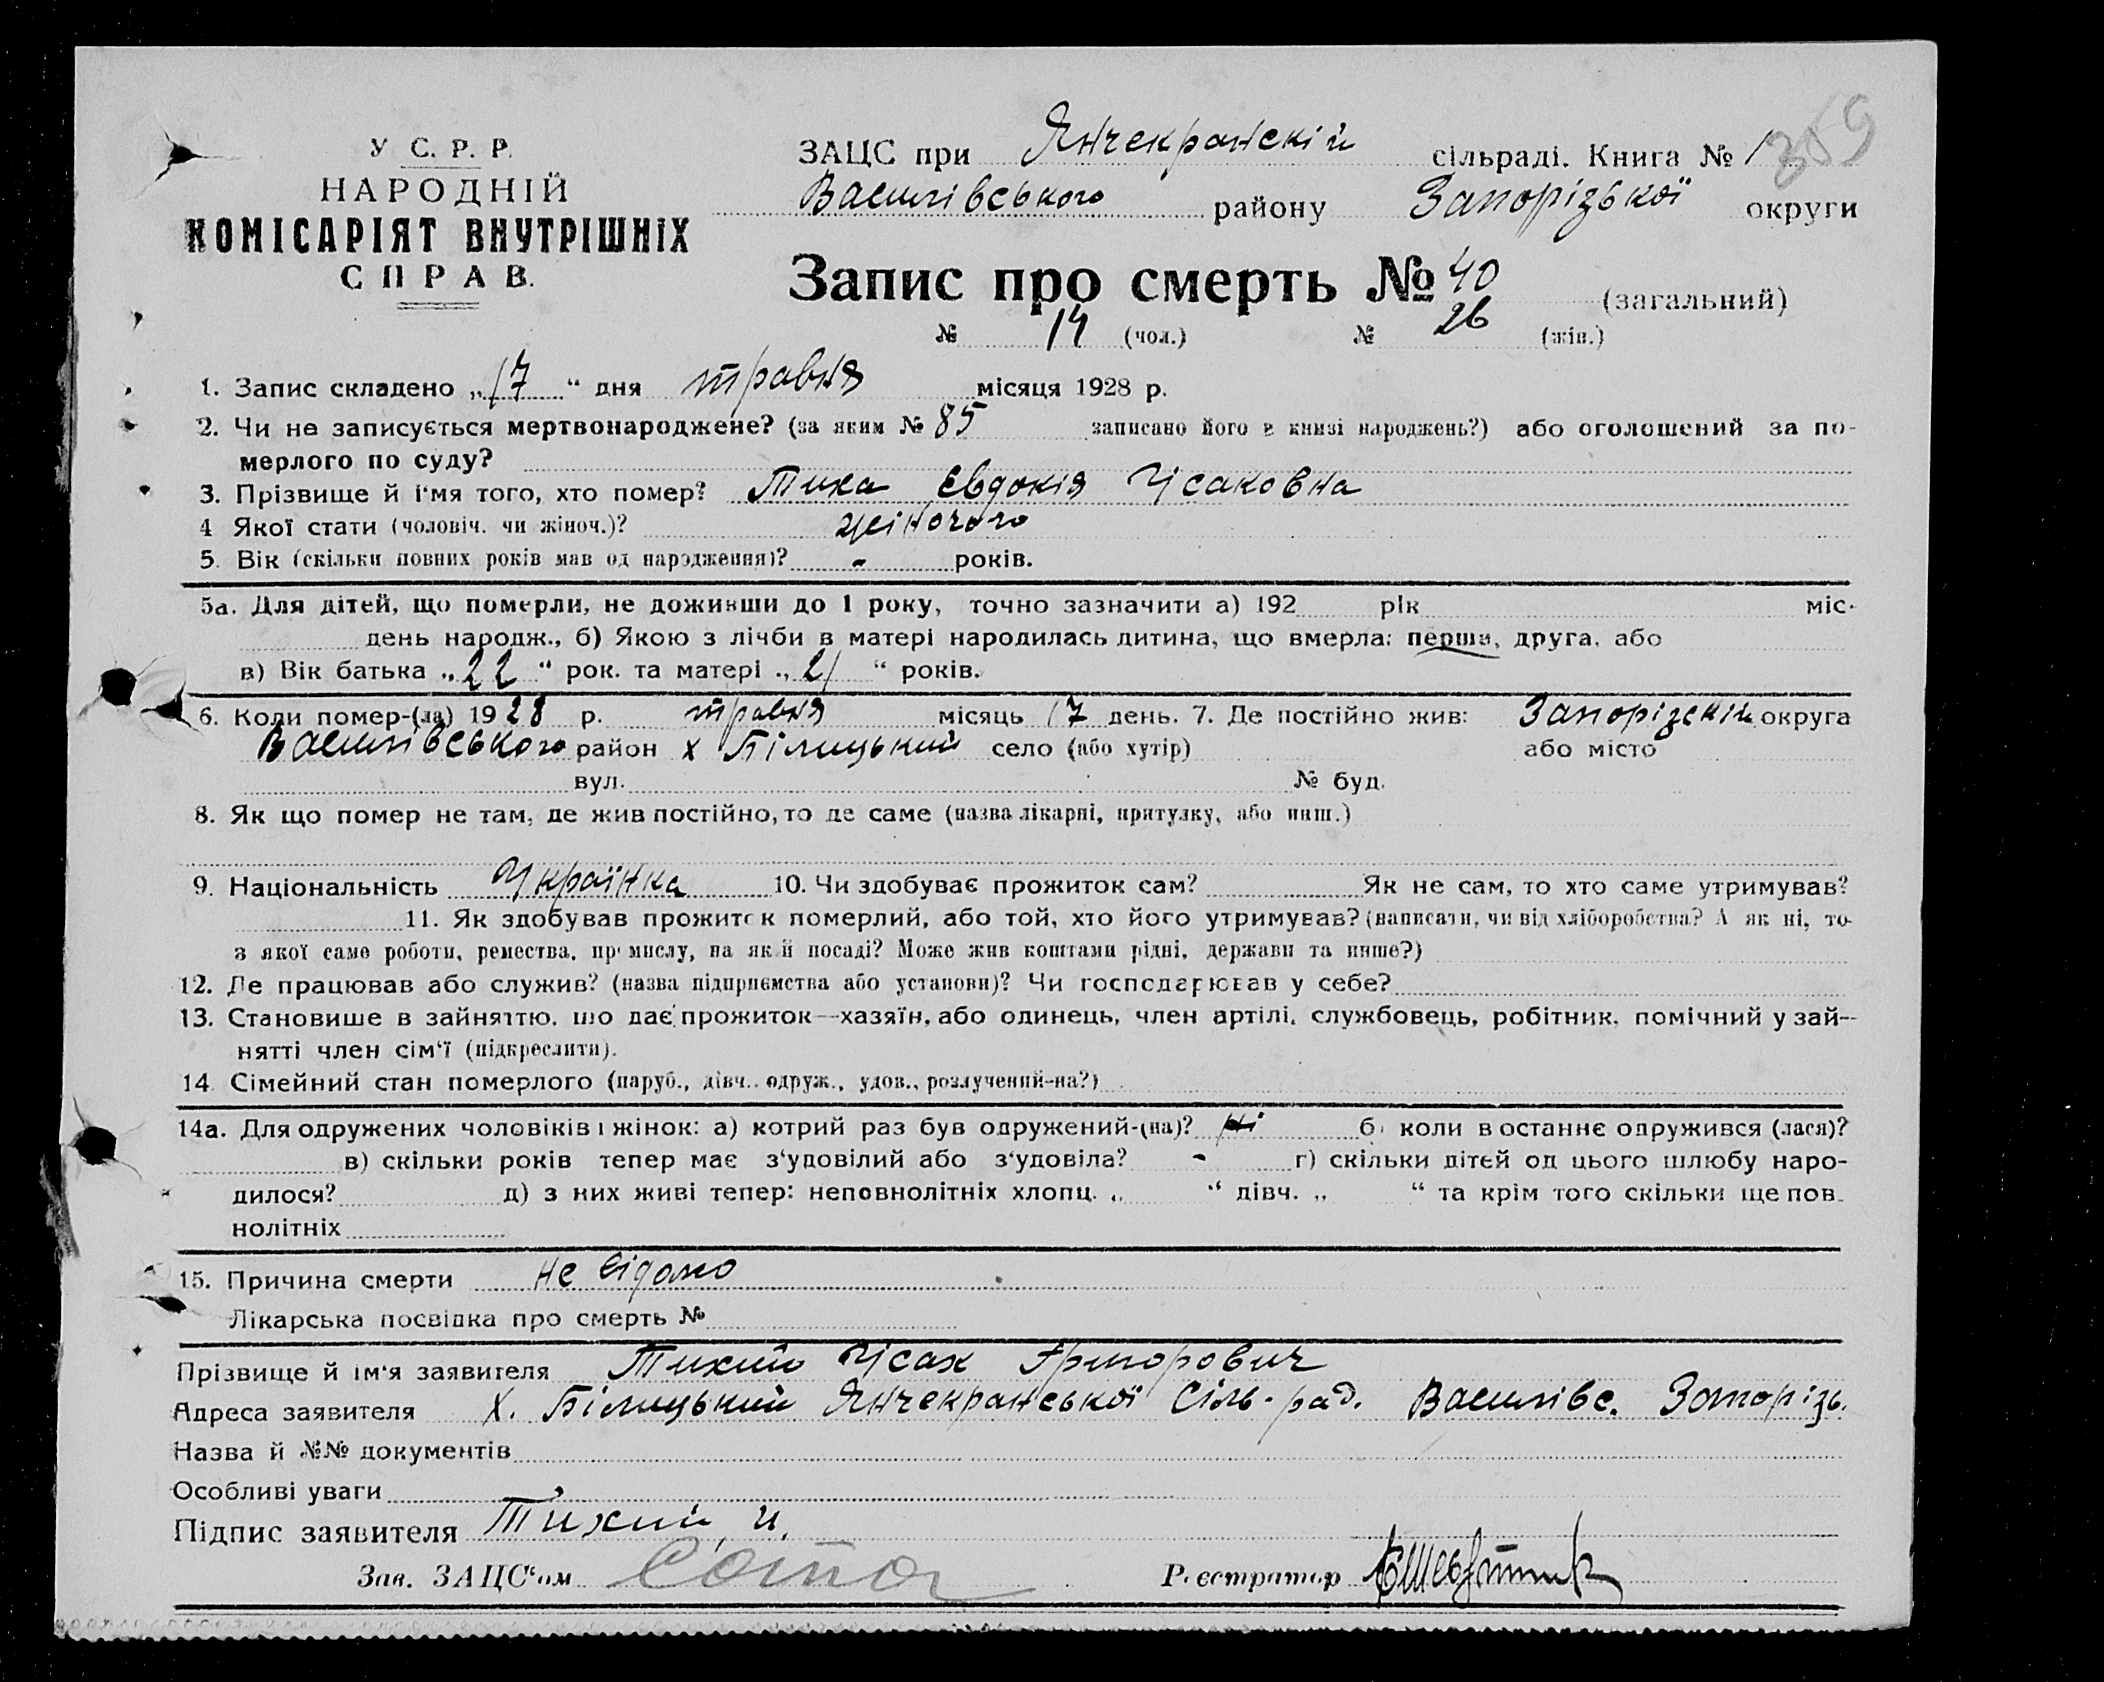 У С. Р. Р.
НАРОДНІЙ
КОМІСАРІЯТ ВНУТРІШНІХ
СПРАВ.
ЗАЦС при Янчекранскій сільраді. Книга № 1
359
Василівського району Запорізької округи
Запис про смерть № 40 (загальний)
№ 14 (чол.) № 26 (жін.)
1. Запис складено „17“ дня травня місяця 1928 р.
2. Чи не записується мертвонароджене? (за яким № 85 записано його в книзі народжень?) або оголошений за по-
мерлого по суду?
3. Прізвище й і'мя того, хто помер? Тиха Євдокія Ісаковна
4 Якої стати (чоловіч. чи жіноч.)? жіночого
5. Вік (скільки повних років мав од народження)? - років.
5а. Для дітей, що померли, не доживши до 1 року, точно зазначити а) 192 рік міс.
день народж., б) Якою з лічби в матері народилась дитина, що вмерла: перша, друга, або
в) Вік батька „22“ рок. та матері „21“ років.
6. Коли помер-(ла) 1928 р. травня місяць 17 день. 7. Де постійно жив: Запорізскій округа
Василівського район х Білицький село (або хутір) або місто
вул. № буд.
8. Як що помер не там, де жив постійно, то де саме (назва лікарні, притулку, або инш.)
9. Національність Українка 10. Чи здобуває прожиток сам? Як не сам, то хто саме утримував?
11. Як здобував прожиток померлий, або той, хто його утримував? (написати, чи від хліборобства? А як ні, то
з якої саме роботи, ремества, промислу, на якій посаді? Може жив коштами рідні, держави та инше?)
12. Де працював або служив? (назва підприємства або установи)? Чи господарював у себе?
13. Становище в зайняттю, що дає прожиток—хазяїн, або одинець, член артілі, службовець, робітник, помічний у зай-
нятті член сім'ї (підкреслити).
14. Сімейний стан померлого (паруб., дівч. одруж., удов., розлучений-на?)
14а. Для одружених чоловіків і жінок: а) котрий раз був одружений-(на)? ні б) коли востаннє одружився (лася)?
в) скільки років тепер має з'удовілий або з'удовіла? - г) скільки дітей од цього шлюбу наро-
дилося? д) з них живі тепер: неповнолітніх хлопц. „ “ дівч. „ “ та крім того скільки ще пов-
нолітніх
15. Причина смерти не відомо
Лікарська посвідка про смерть №
Прізвище й ім'я заявителя Тихий Ісак Григорович
Адреса заявителя х. Білицький Янчекранської Сіль-рад. Василівс. Запорізь.
Назва й №№ документів
Особливі уваги
Підпис заявителя Тихий И.
Зав. ЗАЦС'ом
Реєстратор